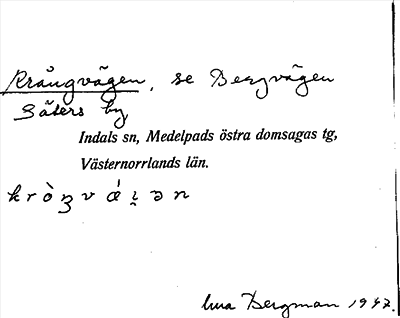 Krångvägen, se Bergvägen
Säters by
Indals sn, Medelpads östra domsagas tg,
Västernorrlands län.
Bergman 1947.